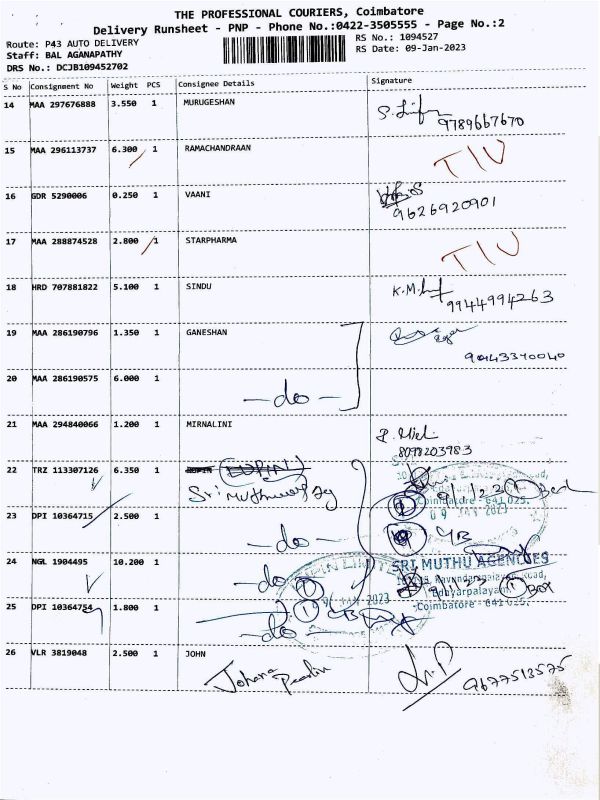 THE PROFESSIONAL COURIERS, Coimbatore
Delivery Runsheet - PNP - Phone No.:0422-3505555 - Page No.:2
Route: P43 AUTO DELIVERY
RS No.: 1094527
Staff: BAL AGANAPATHY
RS Date: 09-Jan-2023
DRS No.: DCJB109452702
S No Consignment No Weight PCS Consignee Details Signature
14 MAA 297676888 3.550 1 MURUGESHAN
9789667670
15 MAA 296113737 6.300 1 RAMACHANDRAAN
16 GDR 5290006 0.250 1 VAANI
9626920901
17 MAA 288874528 2.800 1 STARPHARMA
18 HRD 707881822 5.100 1 SINDU K.M.
9944994263
19 MAA 286190796 1.350 1 GANESHAN
20 MAA 286190575 6.000 1 -do-
21 MAA 294840066 1.200 1 MIRNALINI
8098203983
22 TRZ 113307126 6.350 1 LUPIN (LUPIN)
Sri Muthu
Coimbatore - 641 025.
09 JAN 2023
23 DPI 10364715 2.500 1 -do-
24 NGL 1904495 10.200 1 -do-
SRI MUTHU AGENCIES
Coimbatore - 641 025.
25 DPI 10364754 1.800 1 -do-
26 VLR 3819048 2.500 1 JOHN
9677513575